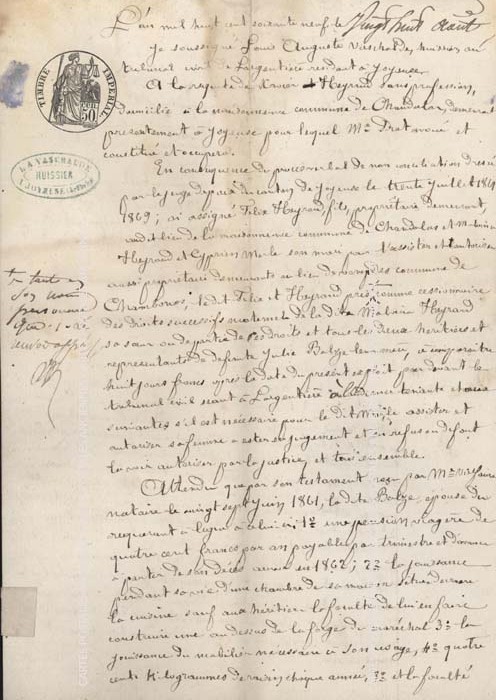 L'an mil huit cent soixante neuf le Vingt huit août
je soussigné Louis Auguste Vaschalde, huissier au
tribunal civil de Largentière résidant à Joyeuse
A la requête de Xavier Heyraud sans profession,
domicilié à la maisonneuve commune de Chandolas, demeurant
présentement à Joyeuse pour lequel Me
constitué et occupera.
En conséquence du procès verbal de non conciliation dressé
par le juge de paix du canton de Joyeuse le trente juillet
1869; ai assigné Félix Heyraud fils, propriétaire demeurant
au dit lieu de la maisonneuve commune de Chandolas et
Heyraud et Cyprien son mari pour l'assister et l'autoriser
aussi propriétaires demeurants au lieu de commune de
Chambonas, le dit Félix Heyraud pris comme cessionnaire
des droits successifs maternels de la dite Heyraud
sa sœur ou de partie de ses droits et tous les deux héritiers et
représentants de défunte Julie Balze leur mère, à comparaître
huit jours francs après la date du présent exploit par devant le
tribunal civil séant à Largentière audience tenante et autres
suivantes s'il est nécessaire pour le dit assister et
autoriser sa femme à ester en jugement et en refus ou défaut
la voir autoriser par la justice, et tous ensemble.
Attendu que par son testament reçu par Me
notaire le vingt sept juin 1861, la dite Balze, épouse du
requérant a légué à celui-ci 1° une pension viagère de
quatre cent francs par an payable par trimestre et d'avance
à partir de son décès arrivé en 1862; 2° la jouissance
pendant sa vie d'une chambre de sa maison
la cuisine sauf aux héritiers la faculté de lui en faire
construire une au dessus de la forge de maréchal 3° la
jouissance du mobilier nécessaire à son usage, 4° quatre
cents kilogrammes de raisins chaque année, 5° et la faculté
TIMBRE IMPÉRIAL
50
LA VASCHALDE
HUISSIER
JOYEUSE